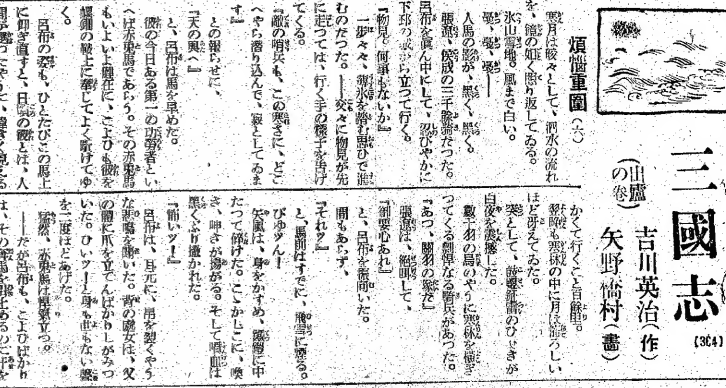 三國志
(364)
山廬
の卷
吉川英治(作)
矢野橋村(畵)
煩惱重圍(六)
寒月は皎々として、泗水の流れ
を、鏡の如く照り返してゐる。
氷山雪地。風まで白い。
曼、曼、曼――
人馬の影が、黒く、黒く。
張遼、侯成の三千餘騎だつた。
呂布を眞ん中にして、忍びやかに
下邳の城から立つて行く。
『物見。何事もないか』
一歩々々、薄氷を踏む思ひで進
むのだつた。――交々に物見が先
に走つては、行く手の様子を告げ
てくる。
『敵の哨兵も、この寒さに、どこ
へやら潜り込んで、寂としてゐま
す』
との報らせに、
『天の與へ』
と、呂布は馬を早めた。
彼の今日ある第一の功勞者とい
へば赤兎馬であらう。その赤兎馬
もいよいよ健在に、こよひも彼を
鞍上に乘してよく駈けてゆ
く。
呂布の姿も、ひとたびこの馬上
に仰ぎ直すと、日頃の彼とは、人
かくて行くこと百餘里。
翌曉も寒林の中に月は凄ろしい
ほど冴えてゐた。
突として、鼓螺鉦雷のひゞきが
白夜を震撼した。
數千羽の烏のやうに寒林を極ぎ
つてくる剽悍なる哨兵があつた。
『あつ、關羽の隊だ』
張遼は、絶叫して、
『御要心あれ』
と、呂布を振向いた。
間もあらず、
『それツ』
と、馬前はすでに、飛雪に煙る。
びゆツ――
矢風は、身をかすめ、鎧に中
たつて碎けた。こゝかしこに、喚
き、呻きが揚がる。そして噴血は
黒くふり撒かれた。
『怖いツ――』
呂布は、耳元に、帛を裂くやう
な悲鳴を聞いた。背の處女は、父
の體に爪を立てんばかりしがみつ
いた。ひいツ――と身も世もない聲
を二度ほどあげた。
猛然、赤兎馬は悍氣立つ。
だが呂布も、こよひばかり